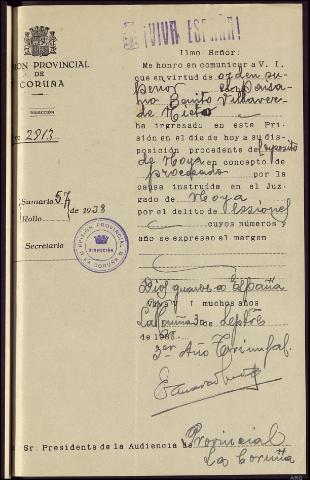 ¡VIVA ESPAÑA!
ION PROVINCIAL
DE
CORUÑA
DIRECCIÓN
2913
Ilmo Señor:
Me honro en comunicar a V. I.
que en virtud de orden su-
perior el Paisa-
no Benito Villaver-
de Nieto
ha ingresado en este Pri-
sión en el día de hoy a su dis-
posición procedente del Deposito
de Noya en concepto de
procesado por la
causa instruida en el Juz-
gado de Noya
por el delito de
cuyos números y
año se expresan al margen
Sumario 57
Rollo de 1938
Secretario
PRISION PROVINCIAL
DIRECCIÓN
LA CORUÑA
Dios guarde a España
V. I. muchos años
La Coruña 3 de Septbre
de 1938
3er Año Triunfal.
Sr. Presidente de la Audiencia de Provincial
La Coruña